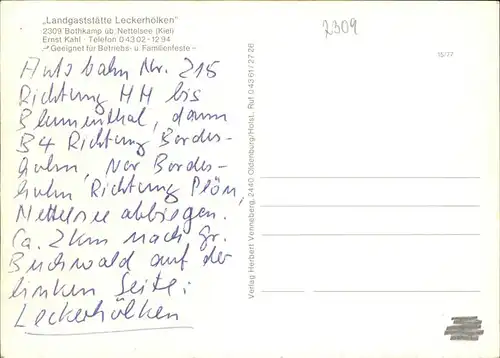 „Landgaststätte Leckerhölken"
2309 Bothkamp üb. Nettelsee (Kiel)
Ernst Kahl · Telefon 0 43 02 - 12 94
– Geeignet für Betriebs- u. Familienfeste –
2309
15/77
Autobahn Nr. 215
Richtung HH bis
Blumenthal, dann
B4 Richtung Bordes-
holm, Vor Bordes-
holm Richtung Plön,
Nettelsee abbiegen.
Ca. 2 km nach Gr.
Buchwald auf der
linken Seite:
Leckerhölken
Verlag Herbert Venneberg, 2440 Oldenburg/Holst., Ruf 0 43 61 / 27 26